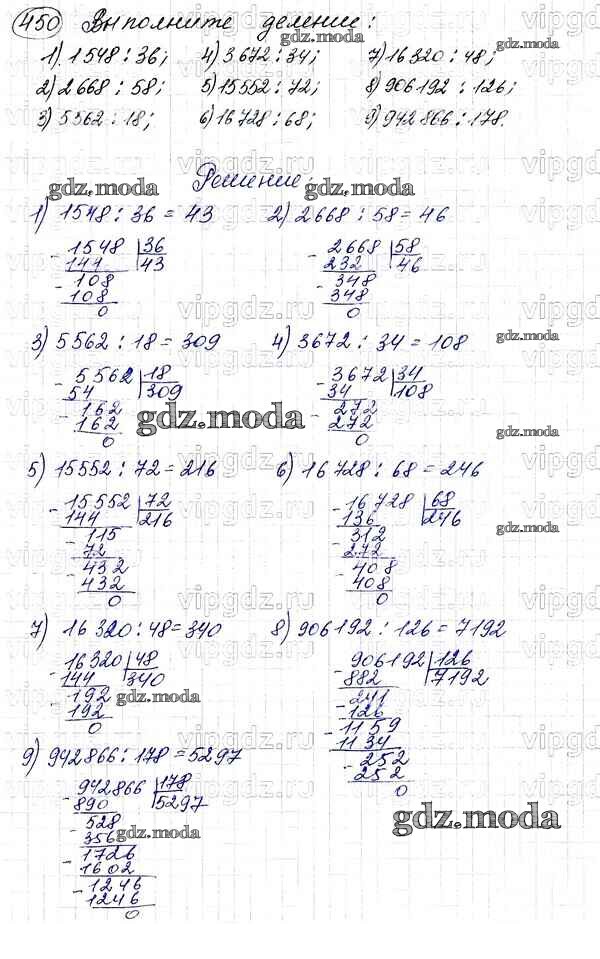 450 Выполните деление:
1). 1548 : 36; 4) 3672 : 34; 7) 16320 : 48;
2) 2668 : 58; 5) 15552 : 72; 8) 906192 : 126;
3) 5562 : 18; 6) 16728 : 68; 9) 942866 : 178.
Решение:
gdz.moda gdz.moda
1) 1548 : 36 = 43 2) 2668 : 58 = 46
- 1548 36 - 2668 58
144 43 232 46
- 108 - 348
108 348
0 0
3) 5562 : 18 = 309 4) 3672 : 34 = 108
- 5562 18 - 3672 34
54 309 34 108
- 162 - 272
162 272
0 0
gdz.moda
5) 15552 : 72 = 216 6) 16728 : 68 = 246
- 15552 72 - 16728 68
144 216 136 246
- 115 - 312
72 272
- 432 - 408
432 408
0 0
7) 16320 : 48 = 340 8) 906192 : 126 = 7192
- 16320 48 - 906192 126
144 340 882 7192
- 192 - 241
192 126
0 - 1159
1134
- 252
252
0
9) 942866 : 178 = 5297
- 942866 178
890 5297
- 528
356
- 1726
1602
- 1246
1246
0
gdz.moda
gdz.moda
vipgdz.ru